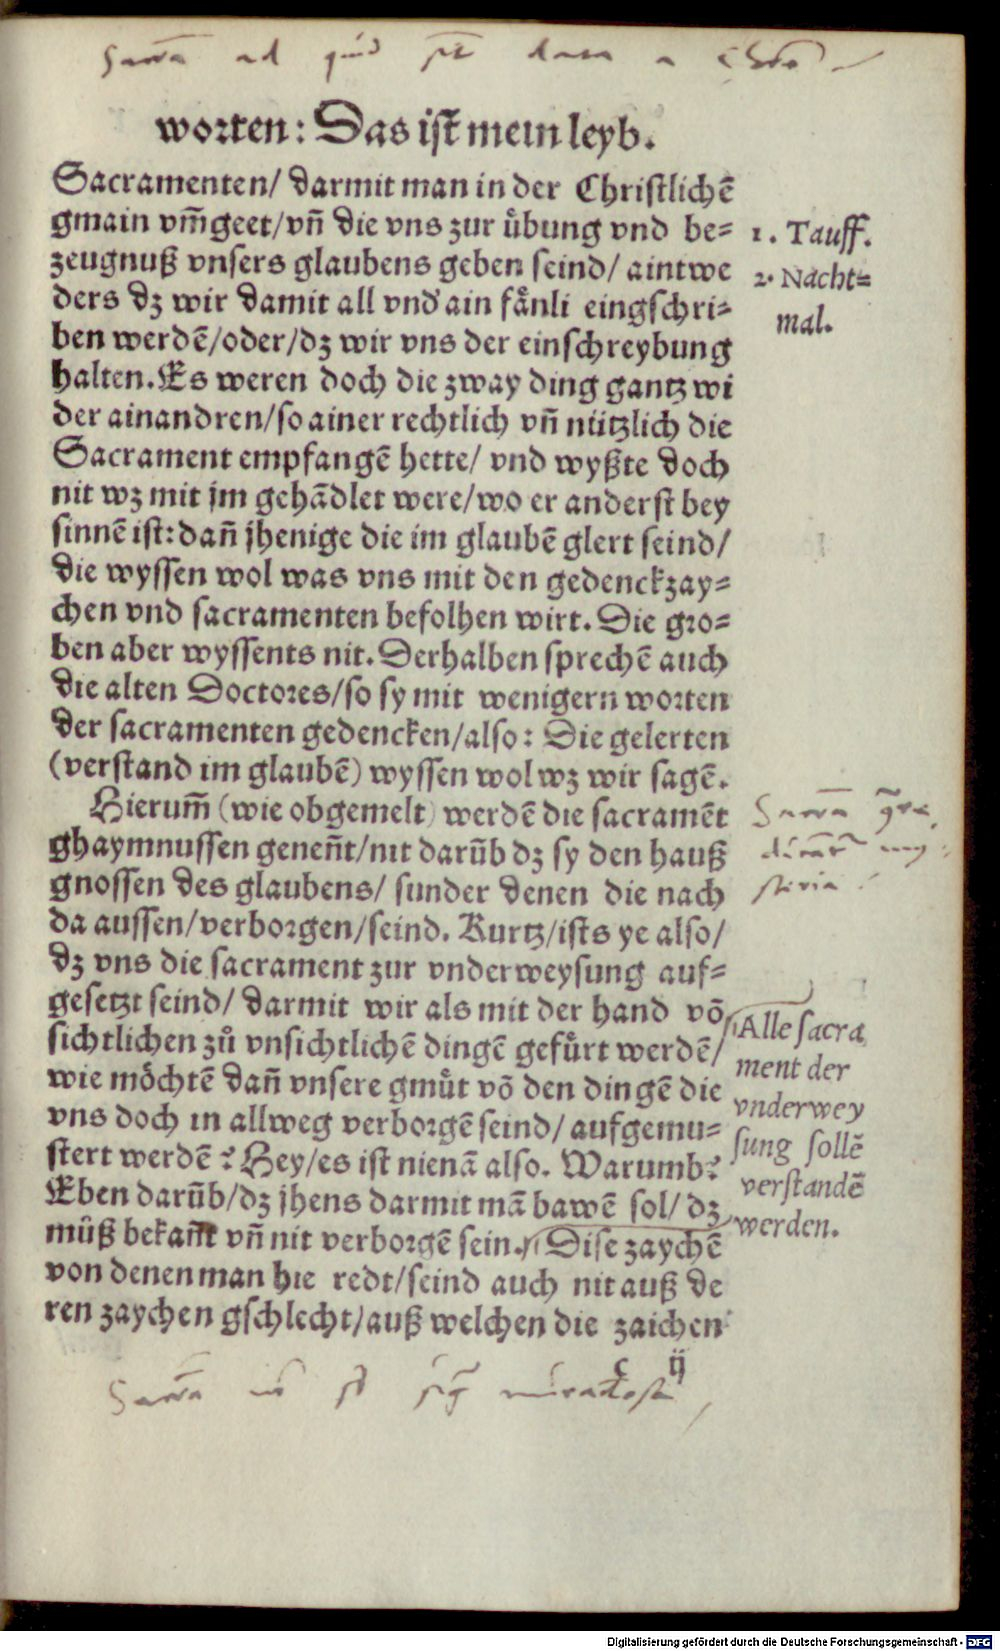 Sacra ad quid sint data a Christo
worten: Das ist mein leyb.
Sacramenten/ darmit man in der Christlichē
gmain vm̄geet/vn̄ die vns zur uͤbung vnd be=
zeugnuß vnsers glaubens geben seind/ aintwe
ders dz wir damit all vnd ain faͤnli eingschri=
ben werdē/oder/dz wir vns der einschreybung
halten. Es weren doch die zway ding gantz wi
der ainandren/so ainer rechtlich vn̄ nützlich die
Sacrament empfangē hette/ vnd wyßte doch
nit wz mit jm gehādlet were/wo er anderst bey
sinnē ist: dan̄ jhenige die im glaubē glert seind/
die wyssen wol was vns mit den gedenckzay=
chen vnd sacramenten befolhen wirt. Die gro=
ben aber wyssents nit. Derhalben sprechē auch
die alten Doctores/so sy mit wenigern worten
der sacramenten gedencken/also: Die gelerten
(verstand im glaubē) wyssen wol wz wir sagē.
Hierum̄ (wie obgemelt) werdē die sacramēt
ghaymnussen genen̄t/nit darūb dz sy den hauß
gnossen des glaubens/ sunder denen die nach
da aussen/verborgen/seind. Kurtz/ists ye also/
dz vns die sacrament zur vnderweysung auf=
gesetzt seind/ darmit wir als mit der hand vō
sichtlichen zuͦ vnsichtlichē dingē gefuͤrt werdē/
wie moͤchtē dan̄ vnsere gmuͤt vō den dingē die
vns doch in allweg verborgē seind/ aufgemu=
stert werdē? Hey/es ist nienā also. Warumb?
Eben darūb/dz jhens darmit mā bawē sol/ dz
muͤß bekan̄t vn̄ nit verborgē sein. Dise zaychē
von denen man hie redt/seind auch nit auß de
ren zaychen gschlecht/auß welchen die zaichen
c ij
1. Tauff.
2. Nacht=
mal.
Sacra
steria
Alle sacra
ment der
vnderwey
sung sollē
verstandē
werden.
Sacra